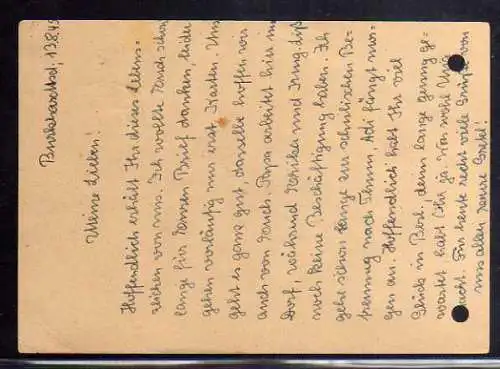 Burkhardtsd., 13.8.45
Meine Lieben!
Hoffendlich erhält Ihr dieses Lebens-
zeichen von uns. Ich wollte Euch schon
lange für Euren Brief danken, leider
gehen vorläufig nur erst Karten. Uns
geht es ganz gut, dasselbe hoffen wir
auch von Euch. Papa arbeitet hier im
Dorf, während und Irmg. diß
noch keine Beschäftigung haben. Ich
geht schon lange zur schulischen Be-
treuung nach Thum. Adi fängt mor-
gen an. Hoffendlich habt Ihr viel
Glück in Bork, denn lange genug ge-
wartet habt Ihr ja. Was wohl
macht. Für heute recht viele Grüße von
uns allen Eure Gretel!